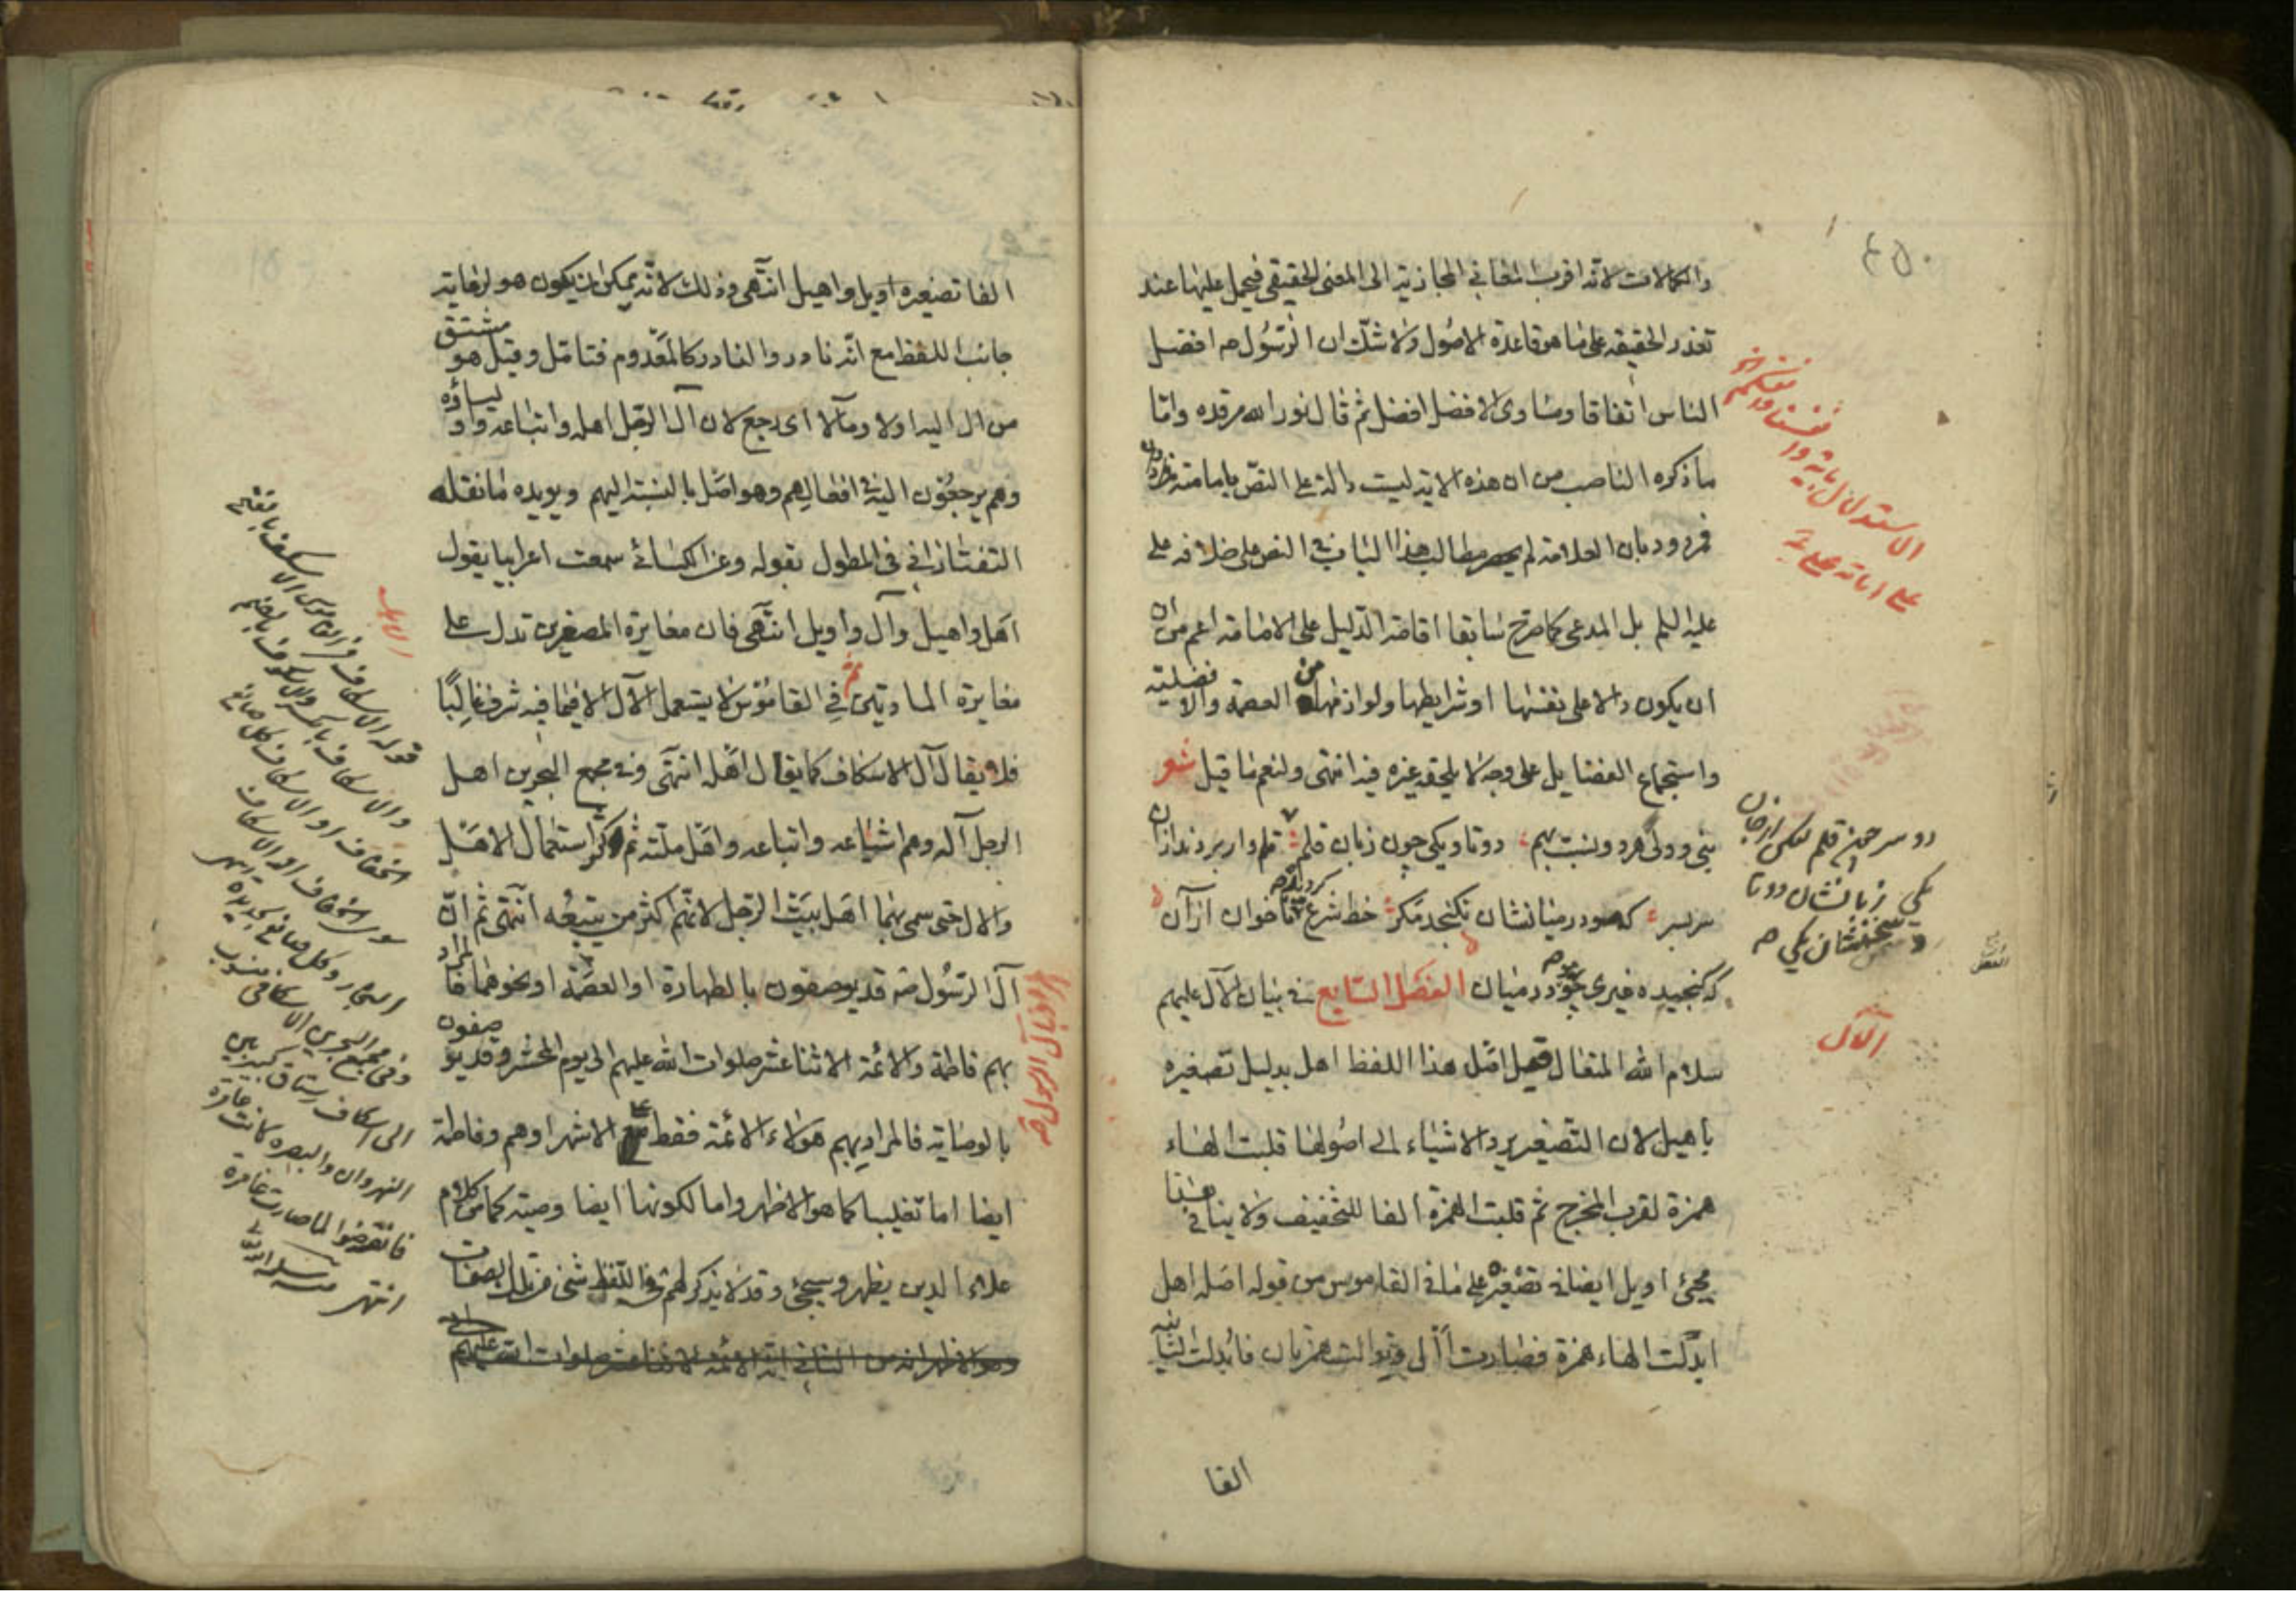 والكمالات لانه اقرب المعاني المجازية الى المعنى الحقيقي فيحمل عليها عند
تعذر الحقيقة على ما هو قاعدة الاصول ولا شك ان الرسول صه افضل
الناس اتفاقا ومساوى الافضل افضل ثم قال نور الله مرقده واما
ما ذكره الناصب من ان هذه الاية ليست دالة على النص بامامته
فمردود بان العلامة لم مطالب هذا الباب في النص على خلافة علي
عليه السلم بل المدعى كما صرح سابقا اقامة الدليل على الامامة اعم من ان
ان يكون دالا على نفسها او شرايطها ولوازمها من العصمة والافضلية
واستجماع الفضايل على وجه لا يلحقه غيره فيه انتهى ولنعم ما قيل شعر
نبي وولى هر دو نسبت بهم دوتا ويكى چون زبان قلم قلم دار بردند ازان
سر بسر كه مو در ميانشان نكنجد مكر خط شرع كرديده تا خوان از آن
كه كنجيده غيرى چو در ميان الفصل السابع في بيان الآل عليهم
سلام الله المتعال قيل اصل هذا اللفظ اهل بدليل تصغيره
باهيل لان التصغير يرد الاشياء الى اصولها قلبت الهاء
همزة لقرب المخرج ثم قلبت الهمزة الفا للتخفيف ولا ينافي هذا
مجئ اويل ايضا في تصغيره على ما في القاموس من قوله اصله اهل
ابدلت الهاء همزة فصارت أأل توالت همزتان فابدلت الثانية
الفا
الاستدلال باية وانفسنا وانفسكم
على امامة علي ع
دو سر چون قلم ليكن از جان
يكى زبانشان دوتا
و سخنشان يكى صه
الآل
٤٥٠
الفا تصغيره اويل واهيل انتهى وذلك لانه يمكن ان يكون هو لرعاية
جانب اللفظ مع انه نادر والنادر كالمعدوم فتامل وقيل هو مشتق
من ال اليه اولا ومآلا اى رجع لان آل الرجل اهله واتباعه و
وهم يرجعون اليه في افعالهم وهو اصل بالنسبة اليهم ويويده ما نقله
التفتازاني في المطول بقوله وعن الكسائي سمعت اعرابيا يقول
اهل واهيل وآل واويل انتهى فان مغايرة المصغرين تدل على
مغايرة المادتين ثم في القاموس لا يستعمل الآل الا فيما فيه شرف غالبا
فلا يقال آل الاسكاف كما يقال اهله انتهى وفي مجمع البحرين اهل
الرجل آله وهم اشياعه واتباعه واهل ملته ثم كثر استعمال الاهل
والال حتى سمى بهما اهل بيت الرجل لانهم اكثر من يتبعه انتهى ثم ان
آل الرسول صه قد يوصفون بالطهارة او العصمة او نحوهما فالمراد
بهم فاطمة والائمة الاثنا عشر صلوات الله عليهم الى يوم المحشر وقد يوصفون
بالوصاية فالمراد بهم هؤلاء الائمة فقط على الاشهر او هم وفاطمة
ايضا اما تغليبا كما هو الاظهر واما لكونها ايضا وصية كما من كلام
علاء الدين يظهر وسيجئ وقد لا يذكر لهم في اللفظ شئ من تلك الصفات
آل الرسول صه
قوله الاسكاف في القاموس
النجار وكل صانع بحديدة انتهى
وفي مجمع البحرين الاسكافي منسوب
الى اسكاف رستاق كبير بين
النهروان والبصرة كانت عامرة
فانقرضوا لما صارت غامرة
انتهى منه سلمه الله